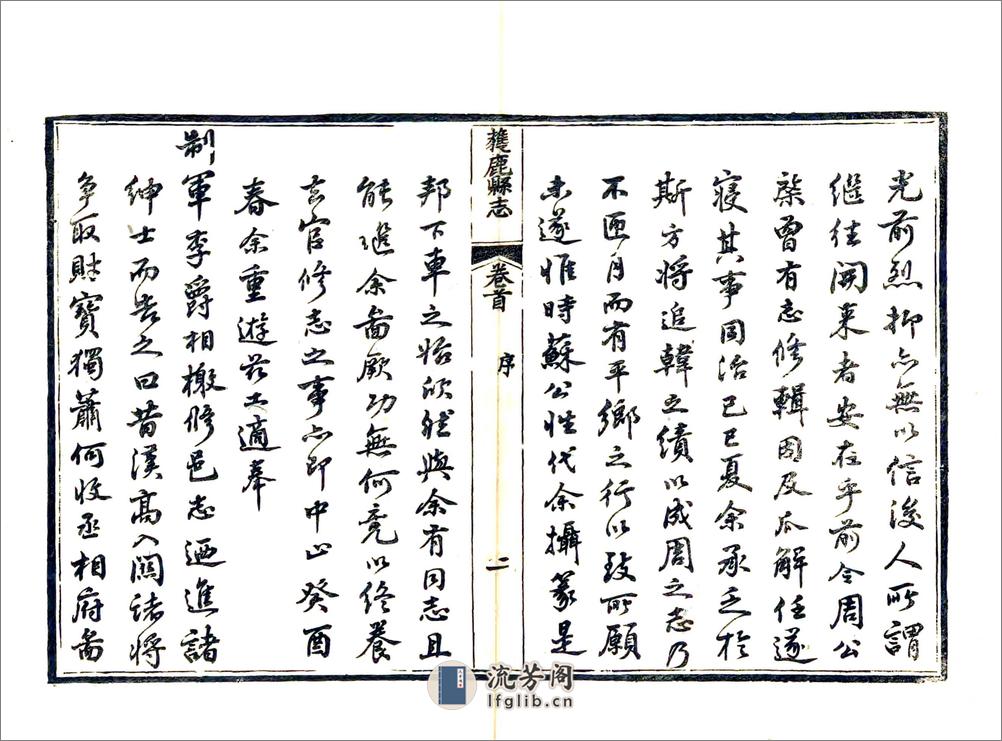 光前烈抑亦無以信後人所謂
繼往開來者安在乎前令周公
棨曾有志修輯因及瓜解任遂
寢其事同治己巳夏余承乏於
斯方將追韓之績以成周之志乃
不匝月而有平鄉之行以致所願
未遂惟時蘇公性代余攝篆是
獲鹿縣志
卷首
序
二
邦下車之始欣然與余有同志且
能繼余啚厥功無何竟以終養
去官修志之事亦即中止癸酉
春余重遊茲土適奉
制軍李爵相檄修邑志迺進諸
紳士而告之曰昔漢高入關諸將
争取財寶獨蕭何收丞相府啚
流芳阁
lfglib.cn